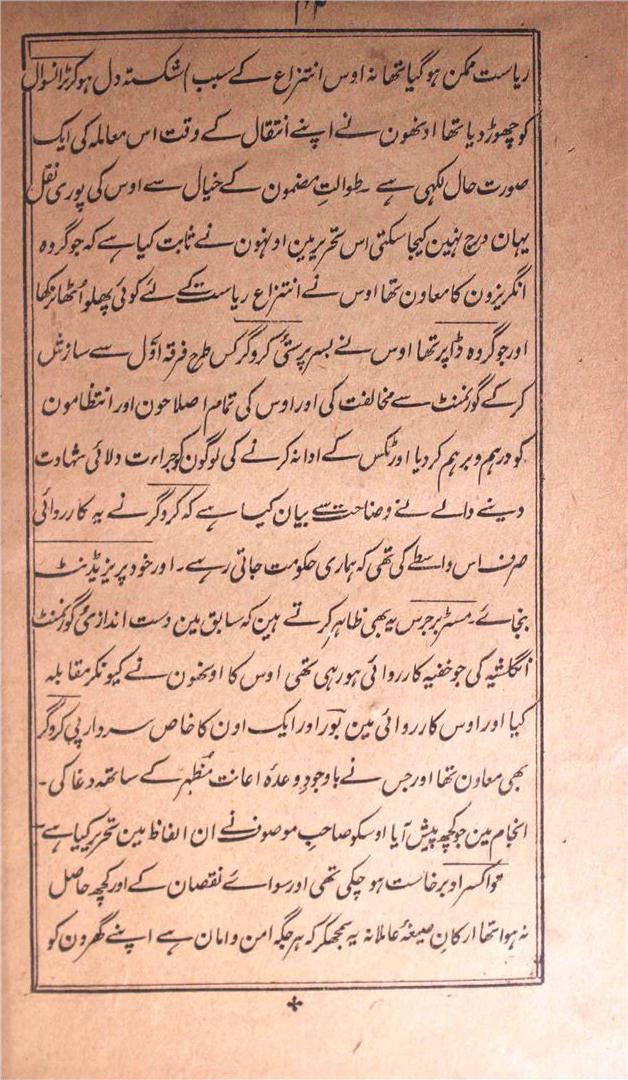 ریاست ممکن ہوگیا تھا نہ اوس انتزاع کے سبب) شکستہ دل ہوکر ٹرانسوال
کو چھوڑ دیا تھا اونھون نے اپنے انتقال کے وقت اس معاملہ کی ایک
صورت حال لکہی ہے ۔ طوالتِ مضمون کے خیال سے اوس کی پوری نقل
یہان درج نہین کیجا سکتی اس تحریر مین اونہون نے ثابت کیا ہے کہ جو گروہ
انگریزون کا معاون تھا اوس نے انتزاع ریاست کے لئے کوئی پھلو اُٹھا نرکھا
اور جو گروہ ڈاپر تھا اوس نے بسرپرستیٔ کروگر کس طرح فرقہ اوّل سے سازش
کرکے گورنمنٹ سے مخالفت کی اور اوس کی تمام اصلاحون اور انتظامون
کو درہم و برہم کردیا اور ٹکس کے ادا نہ کرنے کی لوگون کو جراءت دلائی شہادت
دینے والے نے وضاحت سے بیان کیا ہے کہ کروگر نے یہ کارروائی
صرف اس واسطے کی تھی کہ ہماری حکومت جاتی رہے ۔ اور خود پریزیڈنٹ
بنجائے ۔ مسٹر برجرس یہ بھی ظاہر کرتے ہین کہ سابق مین دست اندازیٔ گورنمنٹ
انگلشیہ کی جو خفیہ کارروائی ہو رہی تھی اوس کا اونھون نے کیونکر مقابلہ
کیا اور اوس کارروائی مین بور اور ایک اون کا خاص سردار پی کروگر
بھی معاون تھا اور جس نے باوجودِ وعدہ اعانت مُظہر کے ساتھ دغا کی ۔
انجام مین جو کچھ پیش آیا اوسکو صاحبِ موصوف نے ان الفاظ مین تحریر کیا ہے ۔
تو اکسر او برخاست ہو چکی تھی اور سوائے نقصان کے اور کچھ حاصل
نہ ہوا تھا ارکانِ صیغۂ عاملانہ یہ سمجھکر کہ ہر جگہ امن و امان ہے اپنے گھرون کو